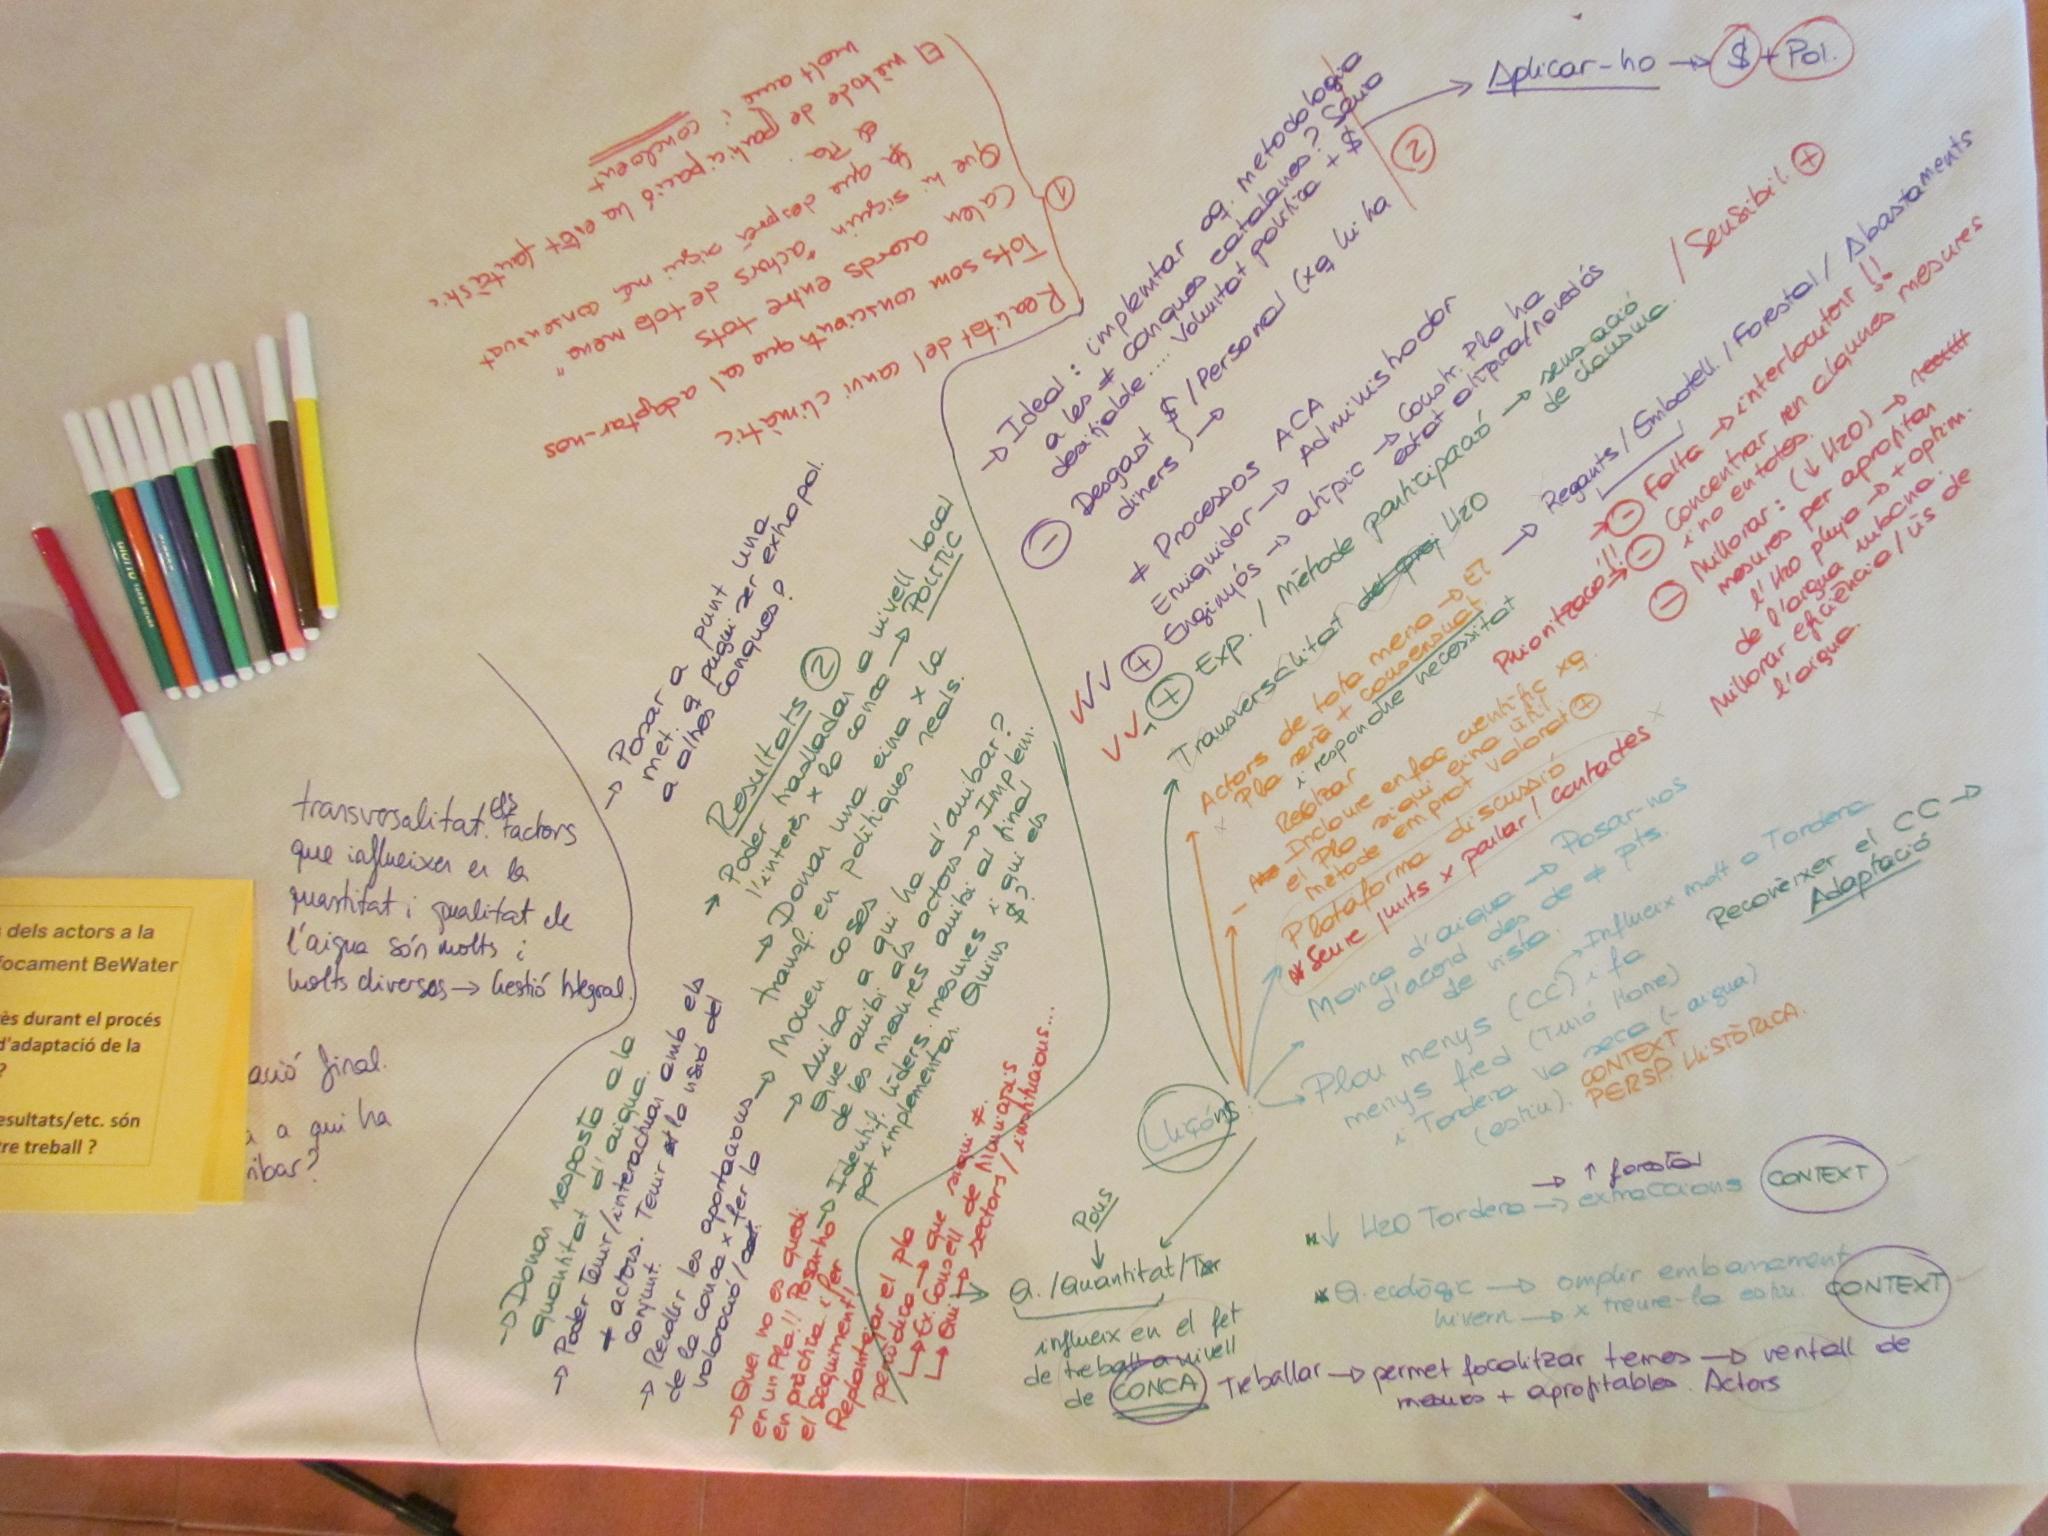 El mètode de participació ha estat fantàstic
molt amè i concloent
Que hi siguin "actors de tota mena"
que després sigui més consensuat
Calen acords entre tots
Tots som conscients que cal adaptar-nos
Realitat del canvi climàtic
1
→ Ideal: implemtar aq. metodologia
a les ≠ conques catalanes? Seria
desitjable.... Voluntat política + $
→ Aplicar-ho → $ + Pol.
2
- Desgast $ / Personal (xq hi ha
diners) →
≠ Processos ACA
Enriquidor → Administrador
+ Enginyós → atípic → Constr. Pla ha
estat atípica/novedós
+ Exp. / Mètode participació → sensació
de classme. / Sensibil. +
Transversalitat H2O
→ Regants / Embotell. / Forestal / Abastaments
Actors de tota mena → El
Pla serà + consensuat
i respondre necessitat
Realitzar
Incloure enfoc científic xq.
el Pla sigui eina útil
mètode emprat valorat +
Plataforma discussió
* Seure junts x parlar / contactes
Priorització!!
→ - Falta → interlocutor!!
- Concentrar ren algunes mesures
i no en totes.
- Millorar: (↓ H2O) →
mesures per aprofitar
l'H2O pluja → + optim.
de l'aigua
Millorar eficiència / ús de
l'aigua.
Manca d'aigua → Posar-nos
d'acord des de ≠ pts.
de vista.
Plou menys (CC) → Influeix molt a Tordera
menys fred (Turó Home)
i Tordera va seca (- aigua)
(estiu).
CONTEXT
PERSP. HISTÒRICA.
Reconèixer el CC →
Adaptació
Lliçóns:
→ ↑ forestal
* ↓ H2O Tordera → extraccions CONTEXT
* Q. ecològic → omplir embassament
hivern → x treure-la estiu. CONTEXT
Pous
↓
Q. / Quantitat / Ter
influeix en el fet
de treball a nivell
de CONCA
Treballar → permet focalitzar temes → ventall de
mesures + aprofitables. Actors
→ Posar a punt una
met. q pugui ser extrapol.
a altres conques?
Resultats 2
→ Poder traslladar a nivell local
l'interés x la conca → POLÍTIC
→ Donar una eina x la
transf. en polítiques reals.
→ Mouen coses
→ Arriba a qui ha d'arribar?
Que arribi als actors → Implem.
de les mesures arribi al final
→ Identif. líders. mesures i qui els
pot implementar. Quins $?
transversalitat. els factors
que influeixen en la
quantitat i qualitat de
l'aigua són molts i
molts diversos → Gestió Integral.
→ Donar resposta a la
quantitat d'aigua.
→ Poder tenir/interactuar amb els
≠ actors. Tenir la visió del
conjunt.
→ Recollir les aportacions
de la conca x fer la
valoració
→ Que no es quedi
en un Pla!! Posar-ho
en pràctica i fer
el seguiment!
Replantejar el pla
periòdica → que sigui ≠.
→ Ex. Consell de Municipis
→ Qui → sectors / institucions...
s dels actors a la
focament BeWater
rès durant el procés
d'adaptació de la
?
esultats/etc. són
tre treball ?
ació final.
a a qui ha
ribar?